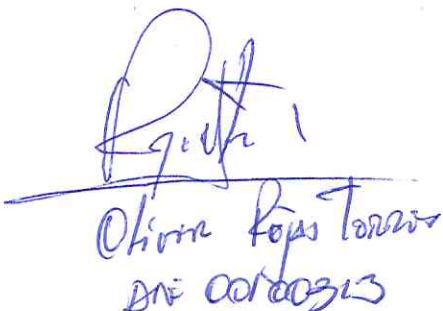 Oliver Rojas Torres
DNI 00100323